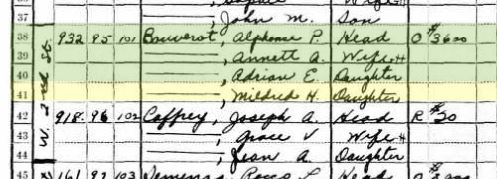 37 John M. Son
38 932 95 101 Bouverot, Alphonse P. Head O $3600
39 ———, Annett A. Wife H
40 ———, Adrian E. Daughter
41 ———, Mildred H. Daughter
42 918 96 102 Coffey, Joseph A. Head R $20
43 ———, Grace V Wife H
44 ———, Jean A. Daughter
45 161 97 103 Head O
W. 2nd St.